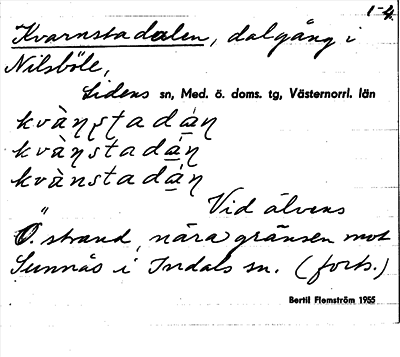 1-4.
Kvarnstadalen, dalgång i
Nilsböle,
Lidens sn, Med. ö. doms. tg, Västernorrl. län
kvàṇṣṭadà̲ṇ
kvàṇstadà̲ṇ
kvànstadà̲ṇ
" Vid älvens
Ö. strand, nära gränsen mot
Sunnås i Indals sn. (forts.)
Bertil Flemström 1955